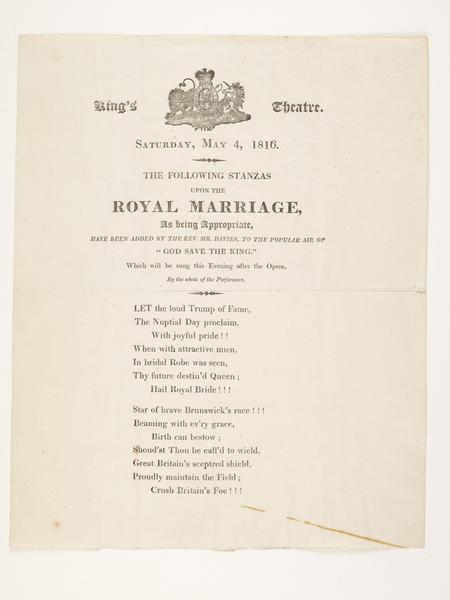 King's Theatre.
Saturday, May 4, 1816.
THE FOLLOWING STANZAS
UPON THE
ROYAL MARRIAGE,
As being Appropriate,
HAVE BEEN ADDED BY THE REV. MR. DAVIES, TO THE POPULAR AIR OF
"GOD SAVE THE KING,"
Which will be sung this Evening after the Opera,
By the whole of the Performers.
LET the loud Trump of Fame,
The Nuptial Day proclaim,
With joyful pride ! !
When with attractive mien,
In bridal Robe was seen,
Thy future destin'd Queen ;
Hail Royal Bride ! ! !
Star of brave Brunswick's race ! ! !
Beaming with ev'ry grace,
Birth can bestow ;
Shoud'st Thou be call'd to wield,
Great Britain's sceptred shield,
Proudly maintain the Field ;
Crush Britain's Foe ! ! !